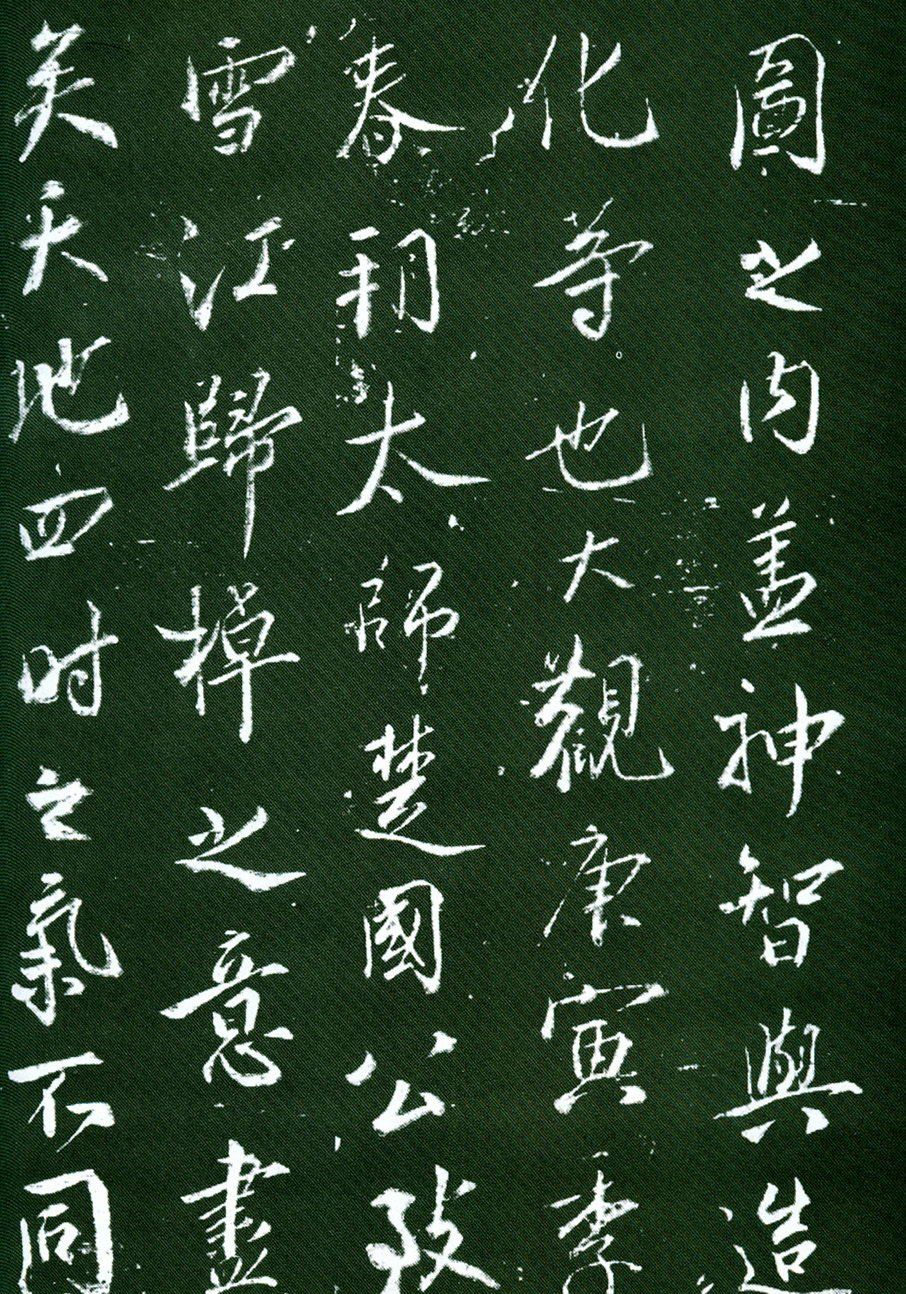 圖之内盖神智與造
化等也大觀庚寅季
春朔太師楚國公致
雪江歸棹之意盡
矣天地四时之氣不同